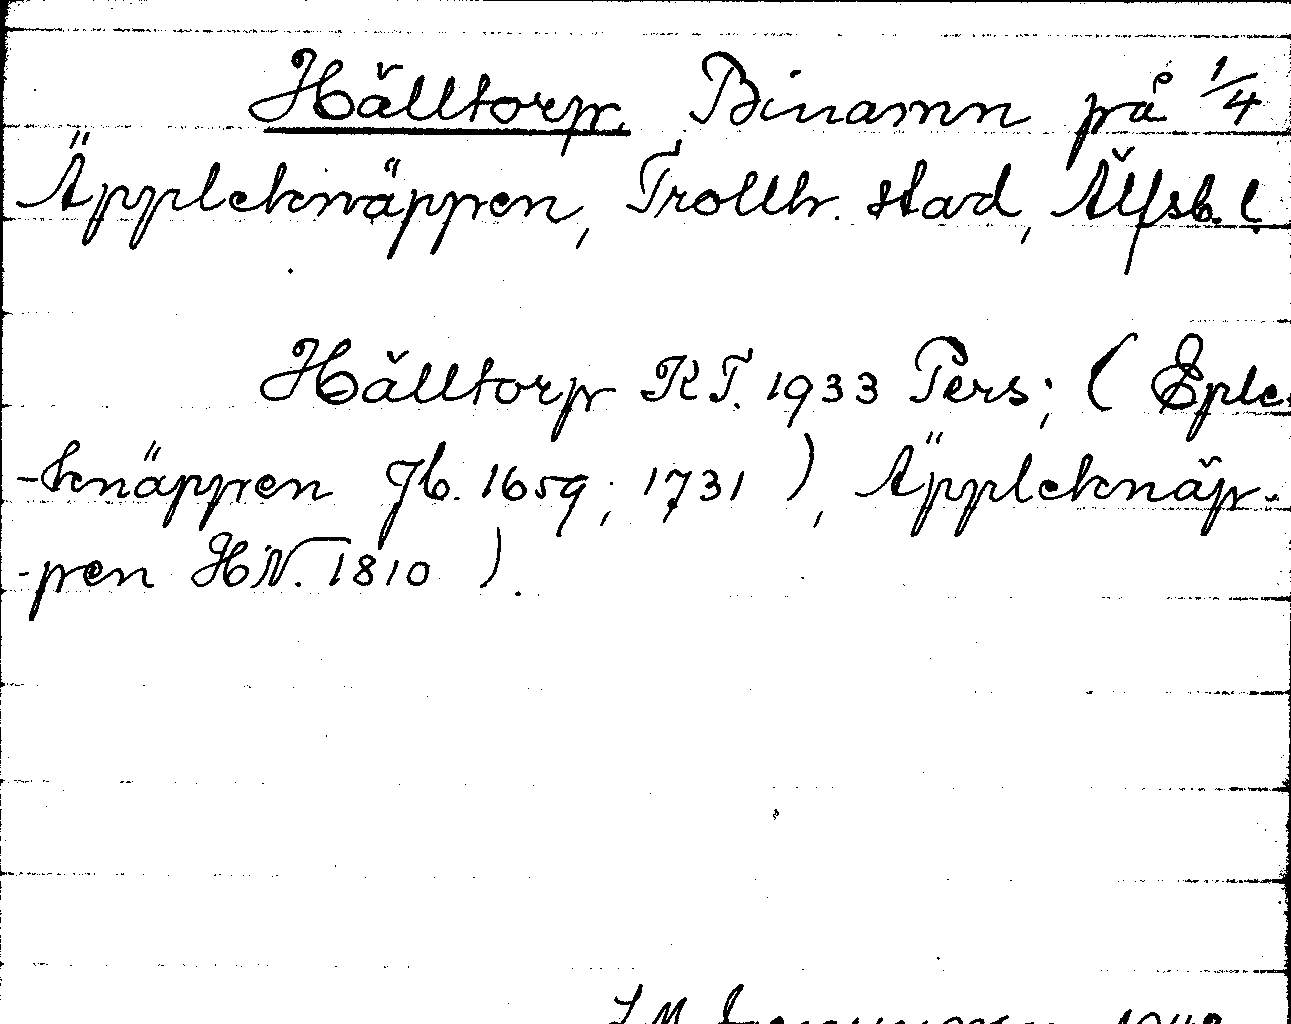 Hälltorp. Binamn på 1/4
Äppleknäppen, Trollh. stad, Älfsb. l.
Hälltorp KT. 1933 Pers; ( Eple-
-knäppen Jb. 1659; 1731 ), Äppleknäp-
-pen HN. 1810 ).